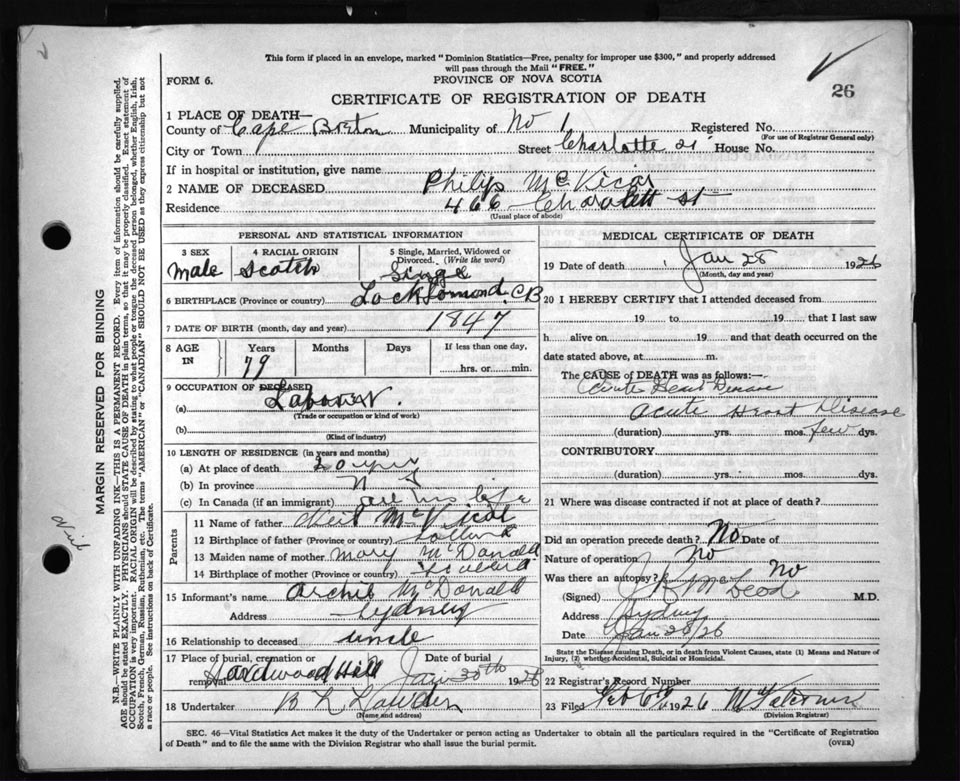 This form if placed in an envelope, marked "Dominion Statistics—Free, penalty for improper use $300," and properly addressed
will pass through the Mail "FREE."
FORM 6.
PROVINCE OF NOVA SCOTIA
26
CERTIFICATE OF REGISTRATION OF DEATH
1 PLACE OF DEATH—
County of Cape Breton Municipality of No 1 Registered No.
(For use of Registrar General only)
City or Town Street Charlotte St House No.
If in hospital or institution, give name
2 NAME OF DECEASED Philip McVicar
Residence 466 Charlott St
(Usual place of abode)
PERSONAL AND STATISTICAL INFORMATION
3 SEX
male
4 RACIAL ORIGIN
Scotch
5 Single, Married, Widowed or
Divorced. (Write the word)
Single
6 BIRTHPLACE (Province or country) Lock Lomond, CB
7 DATE OF BIRTH (month, day and year) 1847
8 AGE
IN
Years
79
Months
Days
If less than one day,
hrs. or min.
9 OCCUPATION OF DECEASED
(a) Labourer.
(Trade or occupation or kind of work)
(b)
(Kind of industry)
10 LENGTH OF RESIDENCE (in years and months)
(a) At place of death 20 yrs
(b) In province N S
(c) In Canada (if an immigrant) all his life
Parents
11 Name of father Neil McVicar
12 Birthplace of father (Province or country) Scotland
13 Maiden name of mother Mary McDonald
14 Birthplace of mother (Province or country) Scotland
15 Informant's name Archie McDonald
Address Sydney
16 Relationship to deceased uncle
17 Place of burial, cremation or
removal Hardwood Hill
Date of burial
Jan 30th 1926
18 Undertaker
(Name and address)
MEDICAL CERTIFICATE OF DEATH
19 Date of death Jan 28 1926
(Month, day and year)
20 I HEREBY CERTIFY that I attended deceased from
19 to 19 that I last saw
h alive on 19 and that death occurred on the
date stated above, at m.
The CAUSE of DEATH was as follows:—
Acute Heart Disease
Acute Heart Disease
(duration) yrs. mos. few dys.
CONTRIBUTORY
(duration) yrs. mos. dys.
21 Where was disease contracted if not at place of death?
Did an operation precede death? No Date of
Nature of operation No
Was there an autopsy? No
(Signed) McLeod M.D.
Address Sydney
Date Jan 28/26
State the Disease causing Death, or in death from Violent Causes, state (1) Means and Nature of
Injury, (2) whether Accidental, Suicidal or Homicidal.
22 Registrar's Record Number
23 Filed Feb 6th 1926
(Division Registrar)
SEC. 46—Vital Statistics Act makes it the duty of the Undertaker or person acting as Undertaker to obtain all the particulars required in the "Certificate of Registration
of Death" and to file the same with the Division Registrar who shall issue the burial permit.
(OVER)
MARGIN RESERVED FOR BINDING
N.B.—WRITE PLAINLY WITH UNFADING INK—THIS IS A PERMANENT RECORD. Every item of information should be carefully supplied.
AGE should be stated EXACTLY. PHYSICIANS should STATE CAUSE OF DEATH in plain terms, so that it may be properly classified. Exact statement of
OCCUPATION is very important. RACIAL ORIGIN will be described by stating to what people or tongue the deceased person belonged, whether English, Irish,
Scotch, French, German, Russian, Ruthenian, etc. The terms "AMERICAN" or "CANADIAN" SHOULD NOT BE USED as they express citizenship but not
a race or people. See instructions on back of Certificate.
Neil